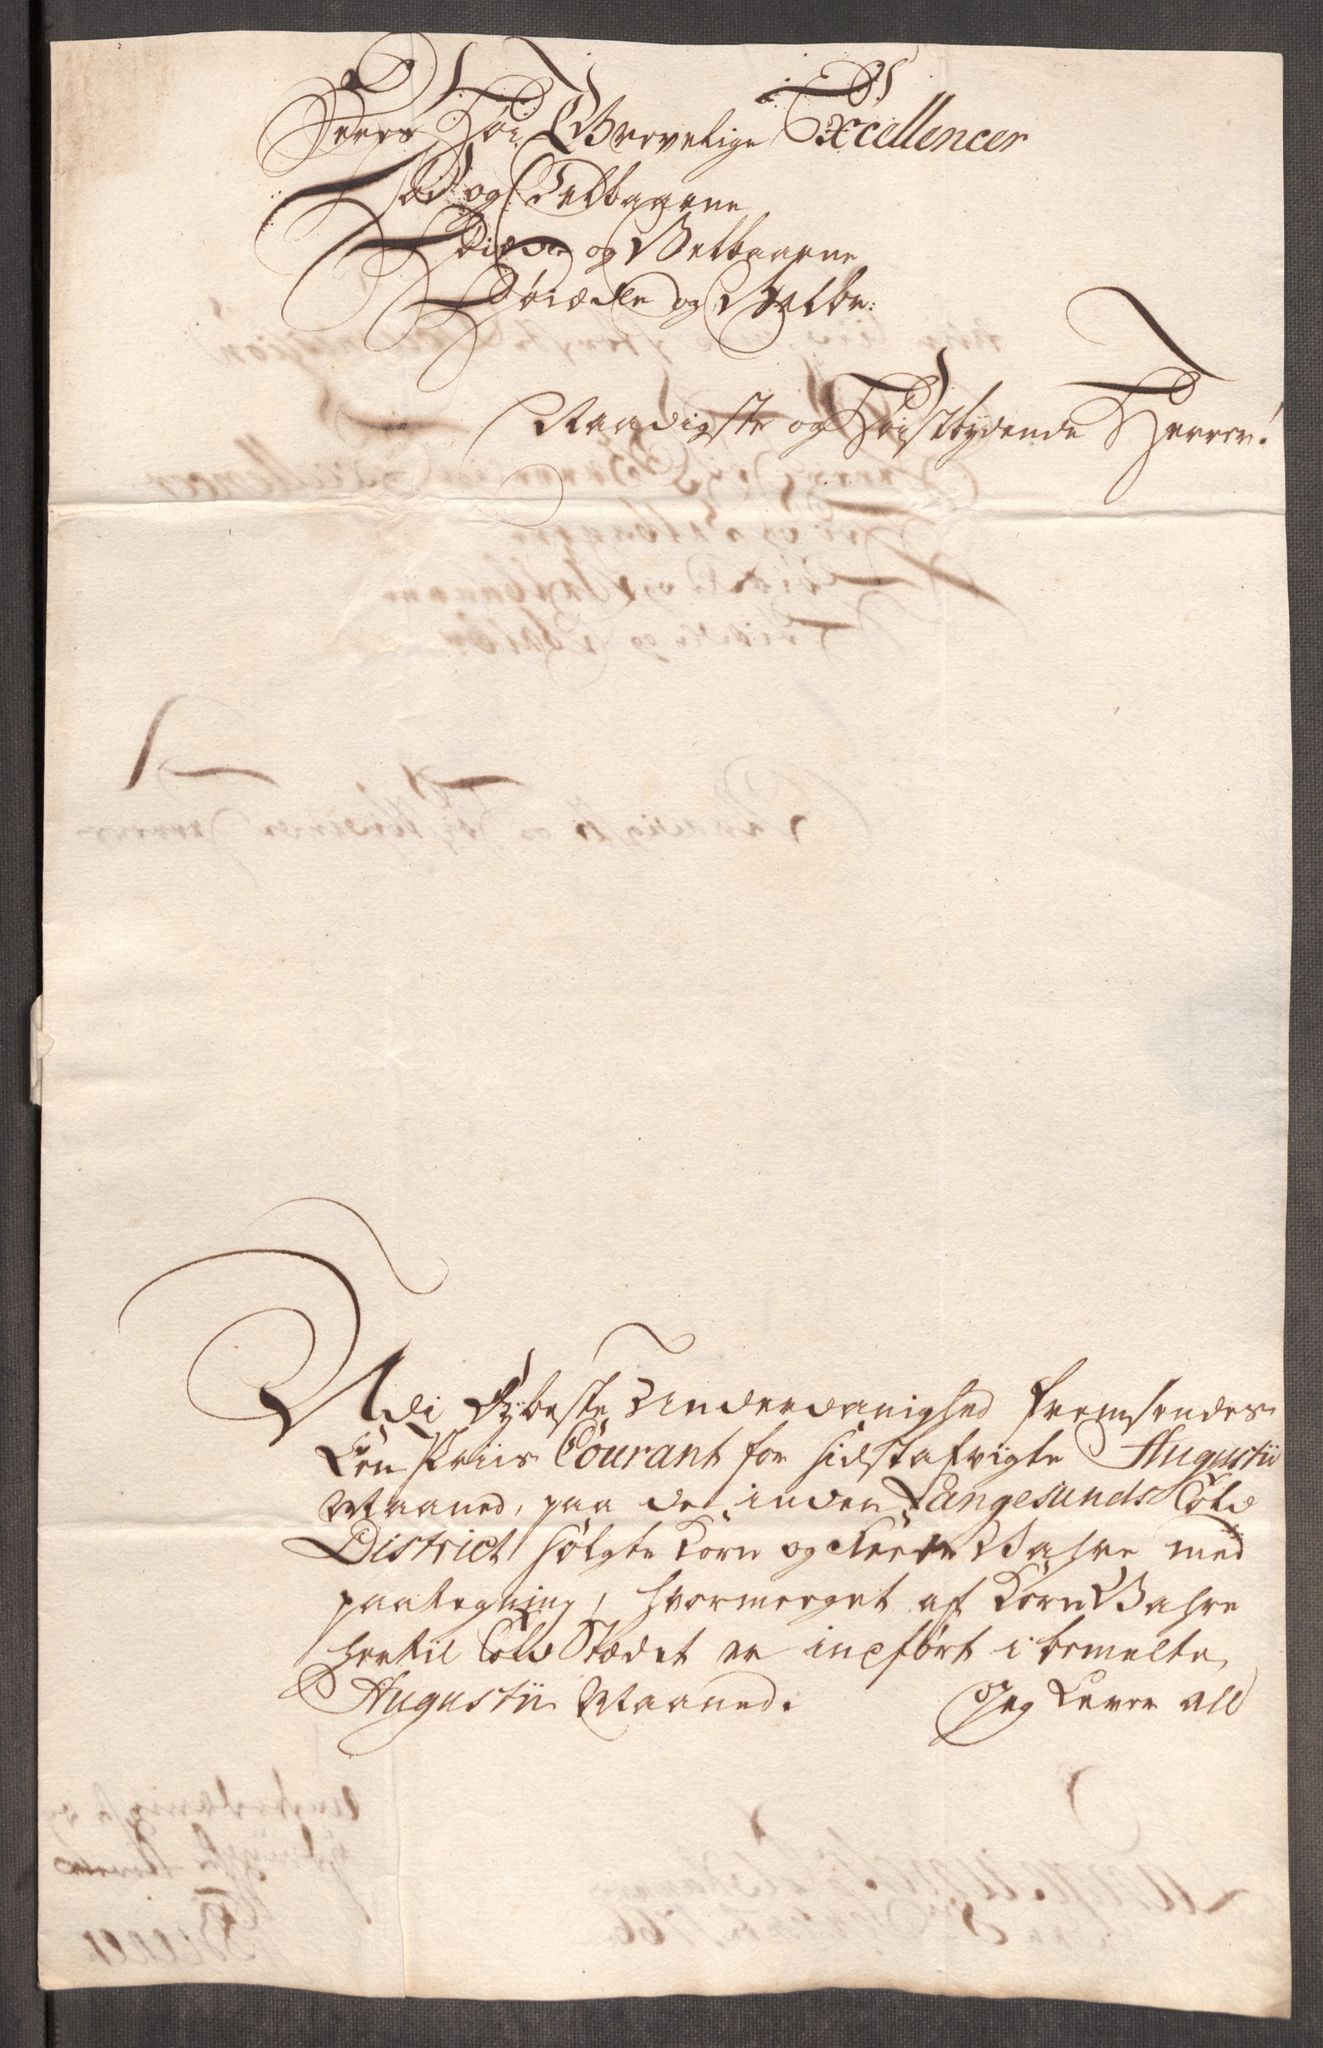 Deres Høi Grevelige Excellencer
Høi og Velbaarne
Høiædle og Velbaarne
Høiædle og Velbr:
Naadigste og Høistbydende Herrer!
Udi dybeste Underdanighed fremsendes
Een Priis Courant for sidstafvigte Augustii
Maaned, paa de inden Langesunds Told
District solgte Korn og Feede Wahre med
paategning, hvormeeget af Korn Wahre
hertil Told Stædet er inpført i bemelte
Augustii Maaned. Jeg Lever all